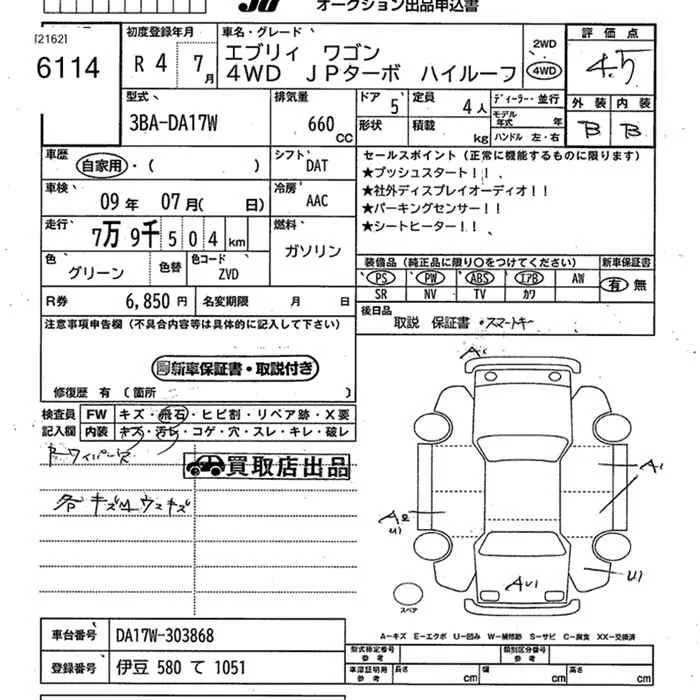 オークション出品申込書
[2162]
6114
初度登録年月
R 4 7月
車名・グレード
エブリィ ワゴン
4WD JPターボ ハイルーフ
2WD
4WD
評価点
4.5
外装 内装
B B
型式
3BA-DA17W
排気量
660 CC
ドア 5
定員 4人
ディーラー・並行
形状
積載 kg
モデル年式 年
ハンドル 左・右
車歴
自家用・( )
シフト DAT
車検
09年 07月( 日)
冷房 AAC
走行
7万9千504km
燃料
ガソリン
色 グリーン
色替
色コード ZVD
R券 6,850円
名変期限 月 日
セールスポイント (正常に機能するものに限ります)
★プッシュスタート!!
★社外ディスプレイオーディオ!!
★パーキングセンサー!!
★シートヒーター!!
装備品 (純正品に限り○をつけてください)
新車保証書
PS PW ABS エアB AW
有 無
SR NV TV カワ
後日品
取説 保証書・スマートキー
注意事項申告欄 (不具合内容等は具体的に記入して下さい)
新車保証書・取説付き
修復歴 有 (箇所 )
検査員記入欄
FW キズ・飛石・ヒビ割・リペア跡・X要
内装 キズ・汚レ・コゲ・穴・スレ・キレ・破レ
買取店出品
各キズM ウスキズ
A1
A1
A2
U1
U1
AU1
スペア
A-キズ E-エクボ U-凹み W-補修跡 S-サビ C-腐食 XX-交換済
車台番号 DA17W-303868
登録番号 伊豆 580 て 1051
型式指定番号 参考
類別区分番号 参考
車庫証明用 参考
長さ cm
幅 cm
高さ cm